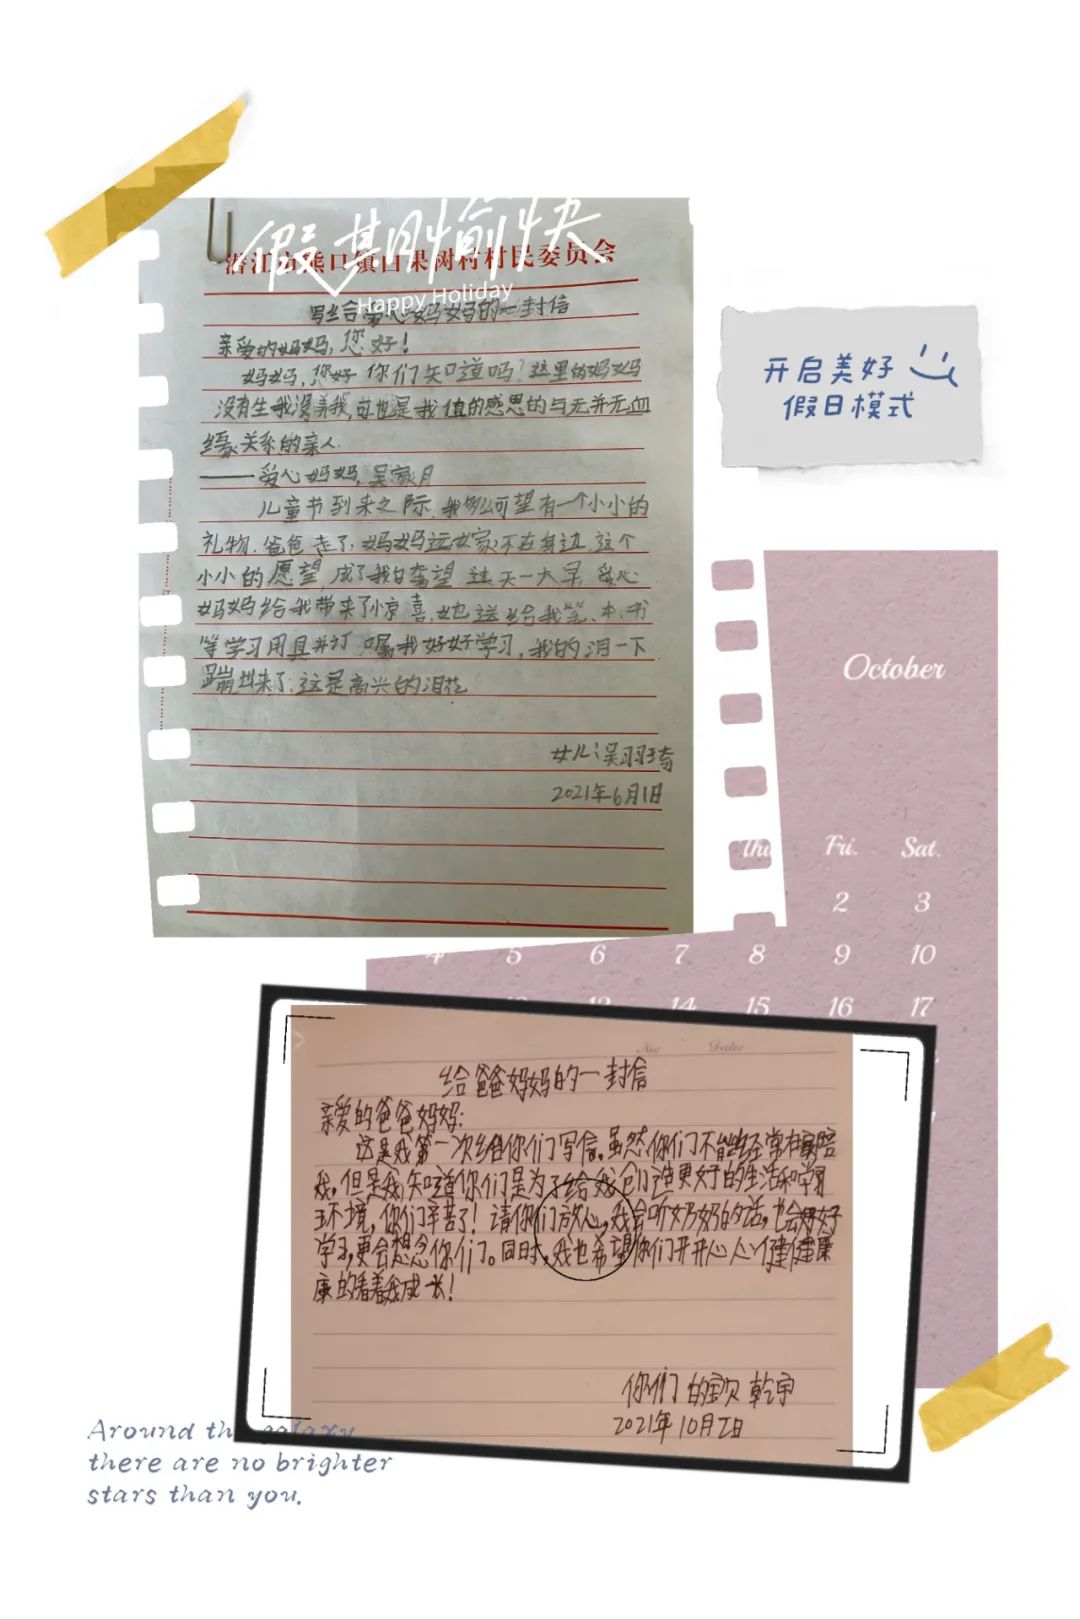 假期愉快
潜江市熊口镇白果树村村民委员会
Happy Holiday
写给爱心妈妈的一封信
亲爱的妈妈，您好！
妈妈，您好 你们知道吗？这里的妈妈
没有生我没养我，可她是我值的感恩的与无并无血
缘关系的亲人.
——爱心妈妈，吴家月
儿童节到来之际，我多么可望有一个小小的
礼物，爸爸走了，妈妈远女家不在身边，这个
小小的愿望，成了我的奢望 这天一大早，爱心
妈妈给我带来了惊喜，她送给我笔、本、书
等学习用具并叮嘱我好好学习，我的泪一下
蹦出来了，这是高兴的泪花
女儿：吴羽琦
2021年6月1日
开启美好
假日模式
October
Thu Fri. Sat.
2 3
4 5 6 7 8 9 10
14 15 16 17
给爸爸妈妈的一封信
亲爱的爸爸妈妈：
这是我第一次给你们写信。虽然你们不能经常陪
我，但是我知道你们是为了给我创造更好的生活和学习
环境，你们辛苦了！请你们放心，我会听奶奶的话，也会好好
学习，更会想念你们。同时，我也希望你们开开心心健健康
康的看着我成长！
你们的宝贝 乾宇
2021年10月2日
Around the galaxy
there are no brighter
stars than you.